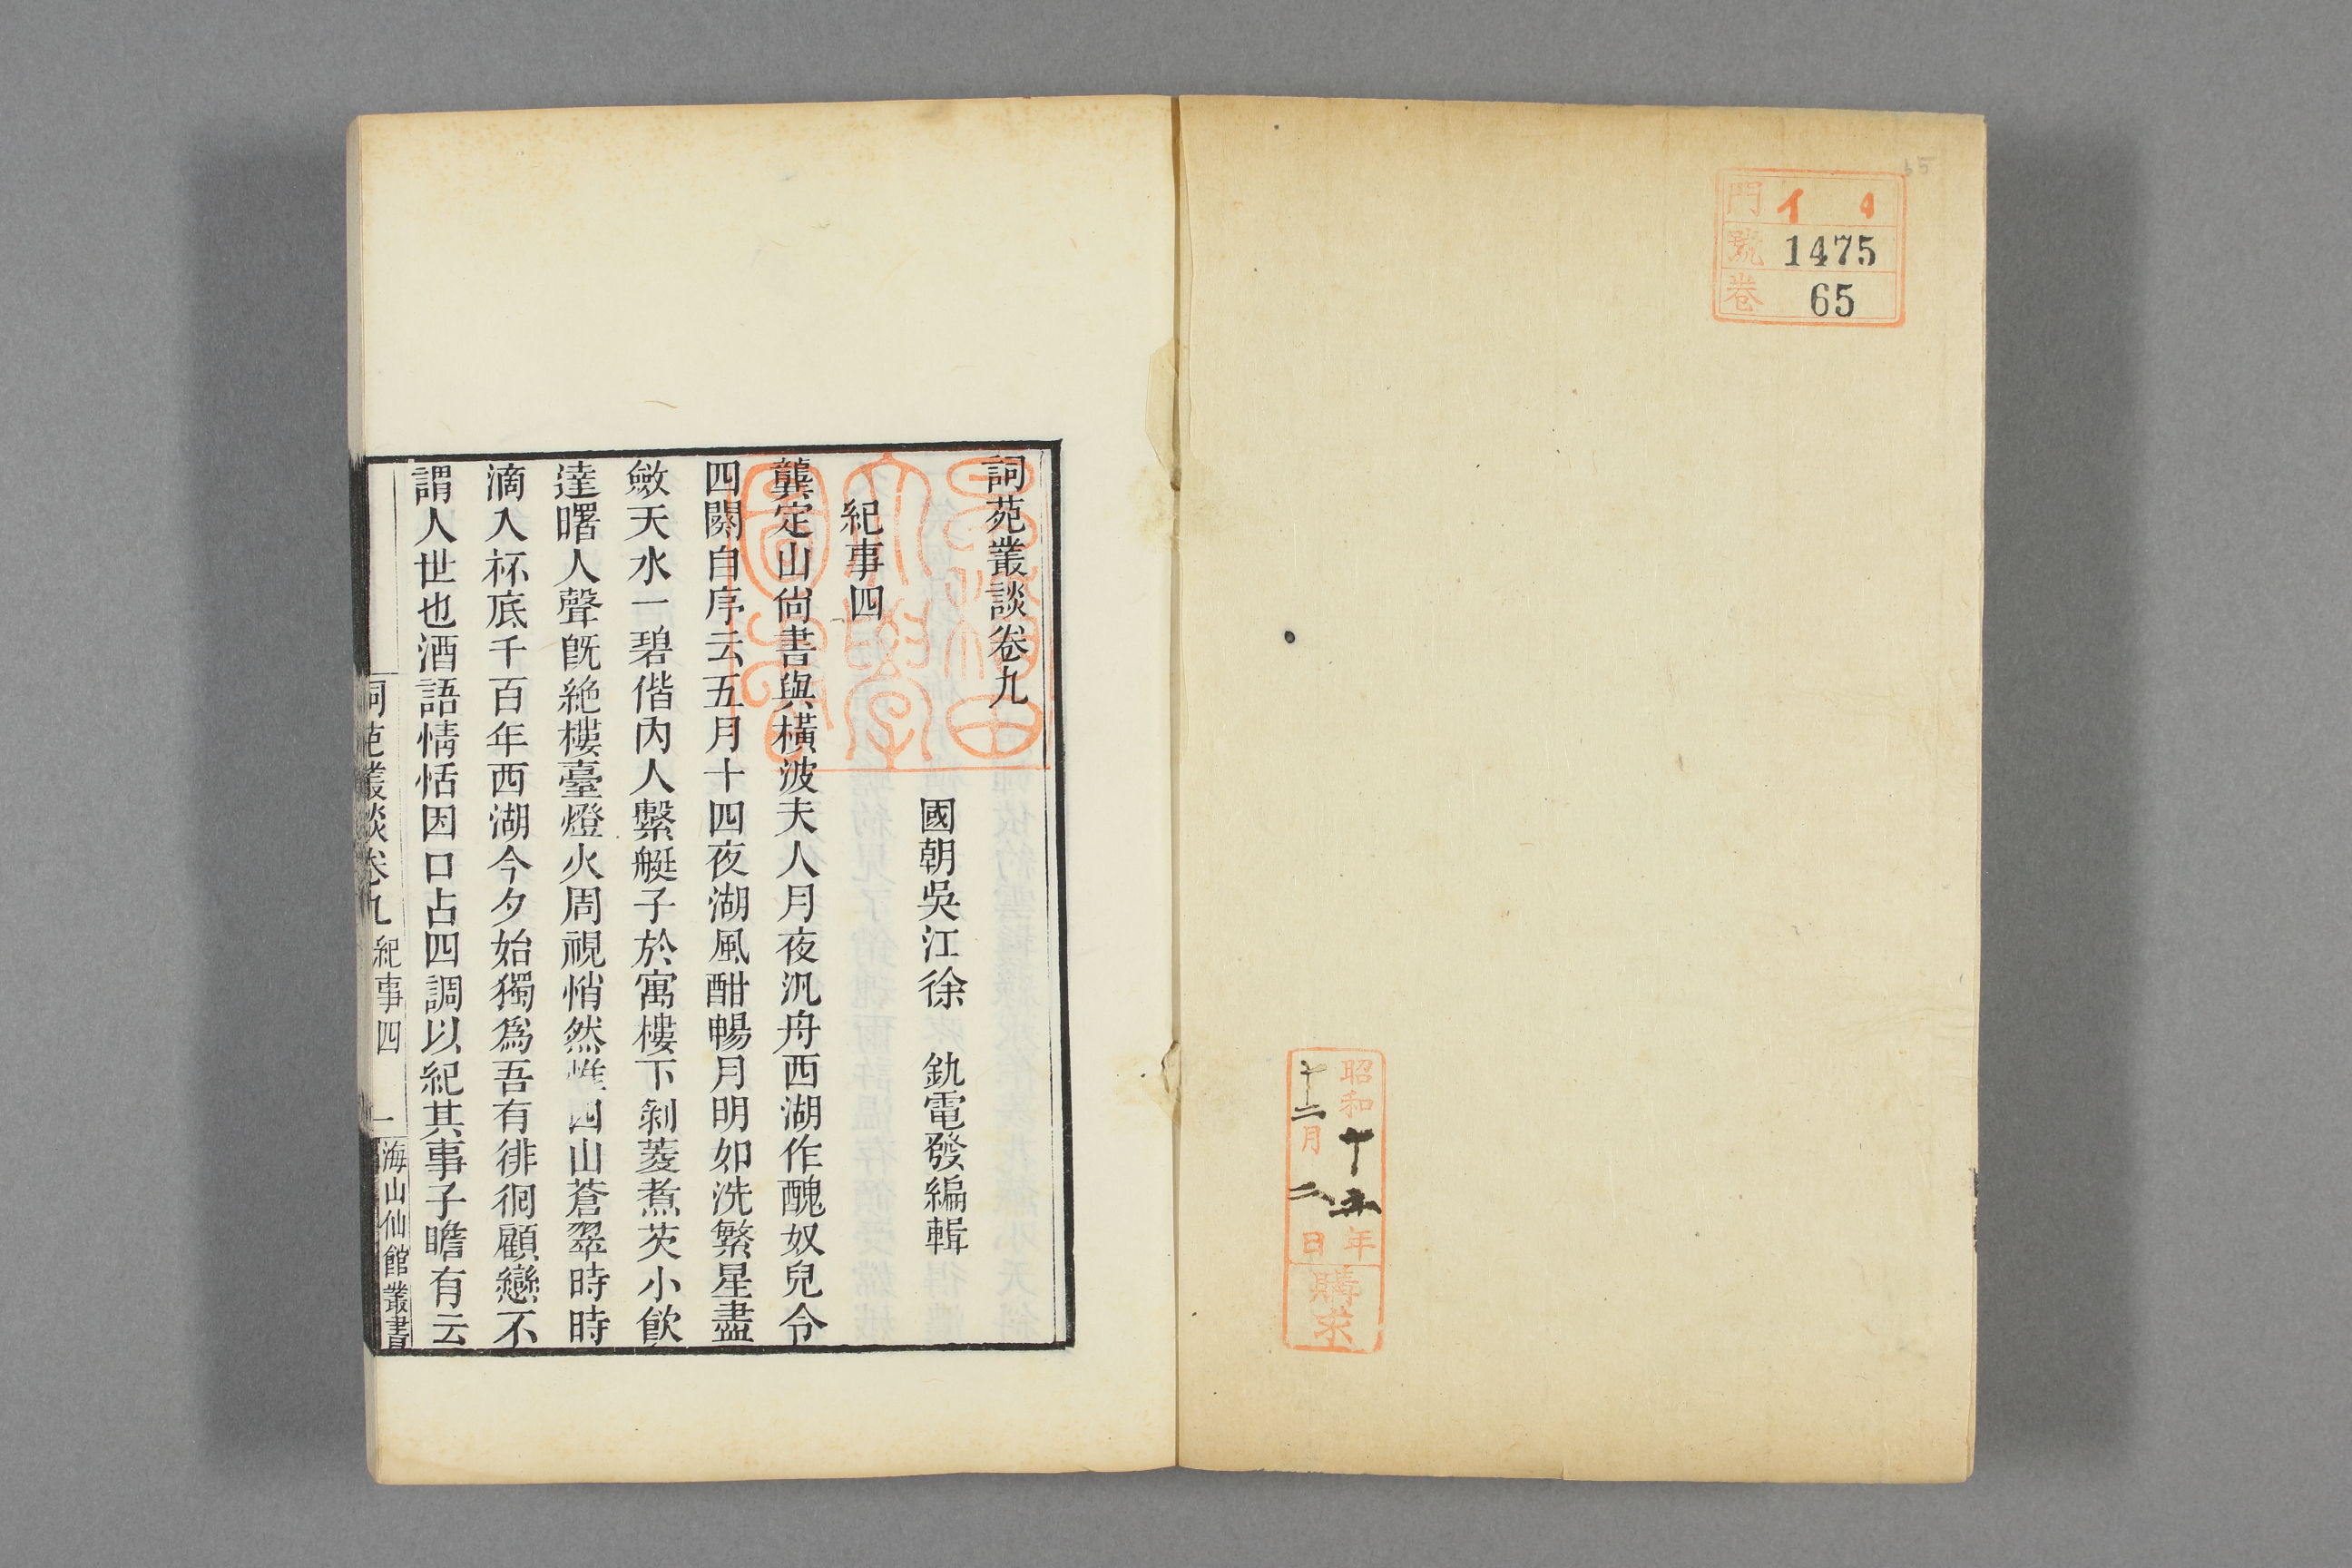 門 イ 4
號 1475
卷 65
昭和十五年
十二月二日
購求
詞苑叢談卷九
國朝吳江徐 釚電發編輯
紀事四
龔定山尚書與橫波夫人月夜汎舟西湖作醜奴兒令
四闋自序云五月十四夜湖風酣暢月明如洗繁星盡
斂天水一碧偕內人繫艇子於寓樓下剝菱煮芡小飲
達曙人聲旣絶樓臺燈火周視悄然惟四山蒼翠時時
滴入杯底千百年西湖今夕始獨爲吾有徘徊顧戀不
謂人世也酒語情恬因口占四調以紀其事子瞻有云
詞苑叢談卷九 紀事四 一 海山仙館叢書